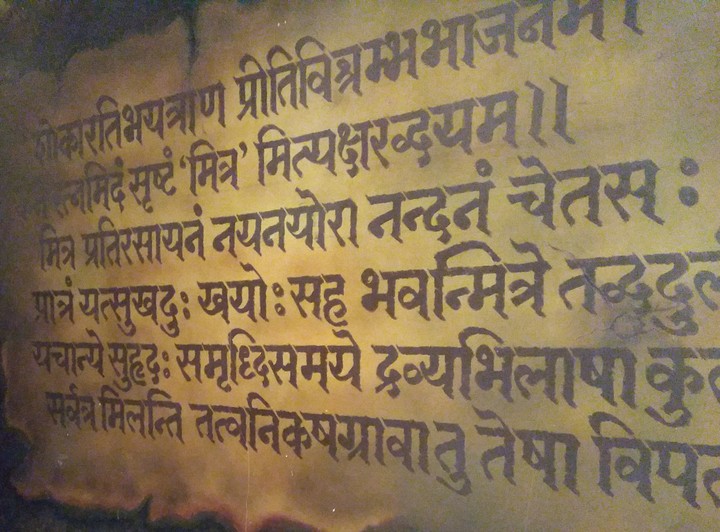 शोकारतिभयत्राण प्रीतिविश्रम्भभाजनम।
रत्नमिदं सृष्टं 'मित्र' मित्यक्षरद्वयम॥
मित्र प्रतिरसायनं नयनयोरा नन्दनं चेतस्:
प्रात्रं यत्सुखदु: खयो: सह भवन्मित्रे
यचान्ये सुहृद: समृध्दिसमये द्रव्यभिलाषा
सर्वत्र मिलन्ति तत्वनिकषग्रावा तु तेषा